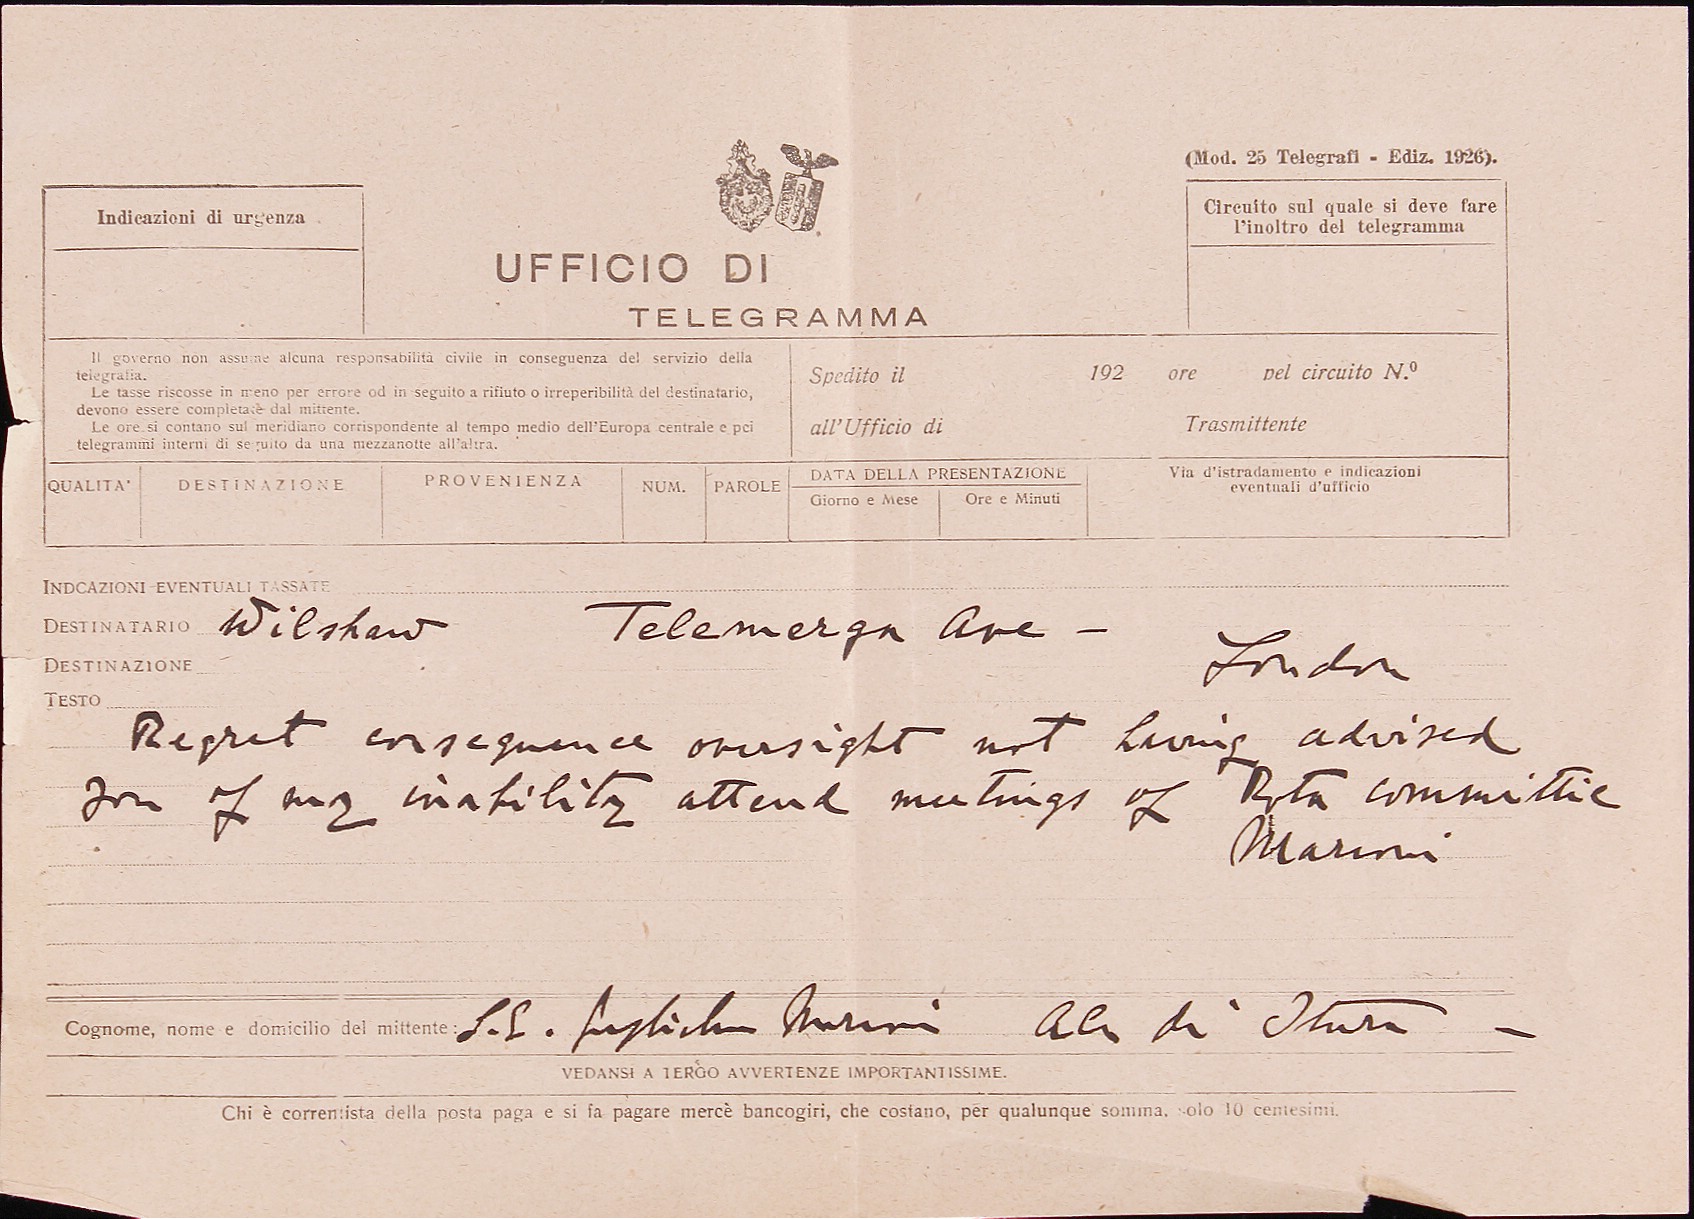 (Mod. 25 Telegrafi - Ediz. 1926).
Indicazioni di urgenza
Circuito sul quale si deve fare
l'inoltro del telegramma
UFFICIO DI
TELEGRAMMA
Il governo non assume alcuna responsabilità civile in conseguenza del servizio della
telegrafia.
Le tasse riscosse in meno per errore od in seguito a rifiuto o irreperibilità del destinatario,
devono essere completate dal mittente.
Le ore si contano sul meridiano corrispondente al tempo medio dell'Europa centrale e pei
telegrammi interni di seguito da una mezzanotte all'altra.
Spedito il 192 ore pel circuito N.º
all'Ufficio di Trasmittente
QUALITA' DESTINAZIONE PROVENIENZA NUM. PAROLE
DATA DELLA PRESENTAZIONE
Giorno e Mese Ore e Minuti
Via d'istradamento e indicazioni
eventuali d'ufficio
INDCAZIONI EVENTUALI TASSATE
DESTINATARIO Wilshaw Telemerga Ave -
DESTINAZIONE London
TESTO
Regret consequence oversight not having advised
you of my inability attend meetings of Rota committee
Marconi
Cognome, nome e domicilio del mittente: S.E. Guglielmo Marconi di -
VEDANSI A TERGO AVVERTENZE IMPORTANTISSIME.
Chi è correntista della posta paga e si fa pagare mercè bancogiri, che costano, per qualunque somma, solo 10 centesimi.